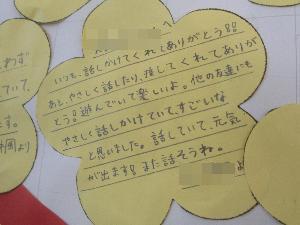 へ
いつも、話しかけてくれてありがとう!!
あと、やさしく話したり、接してくれてありが
とう!遊んでいて楽しいよ。他の友達にも
やさしく話しかけていて、すごいな
と思いました。話していて、元気
が出ます!また話そうね。
よ